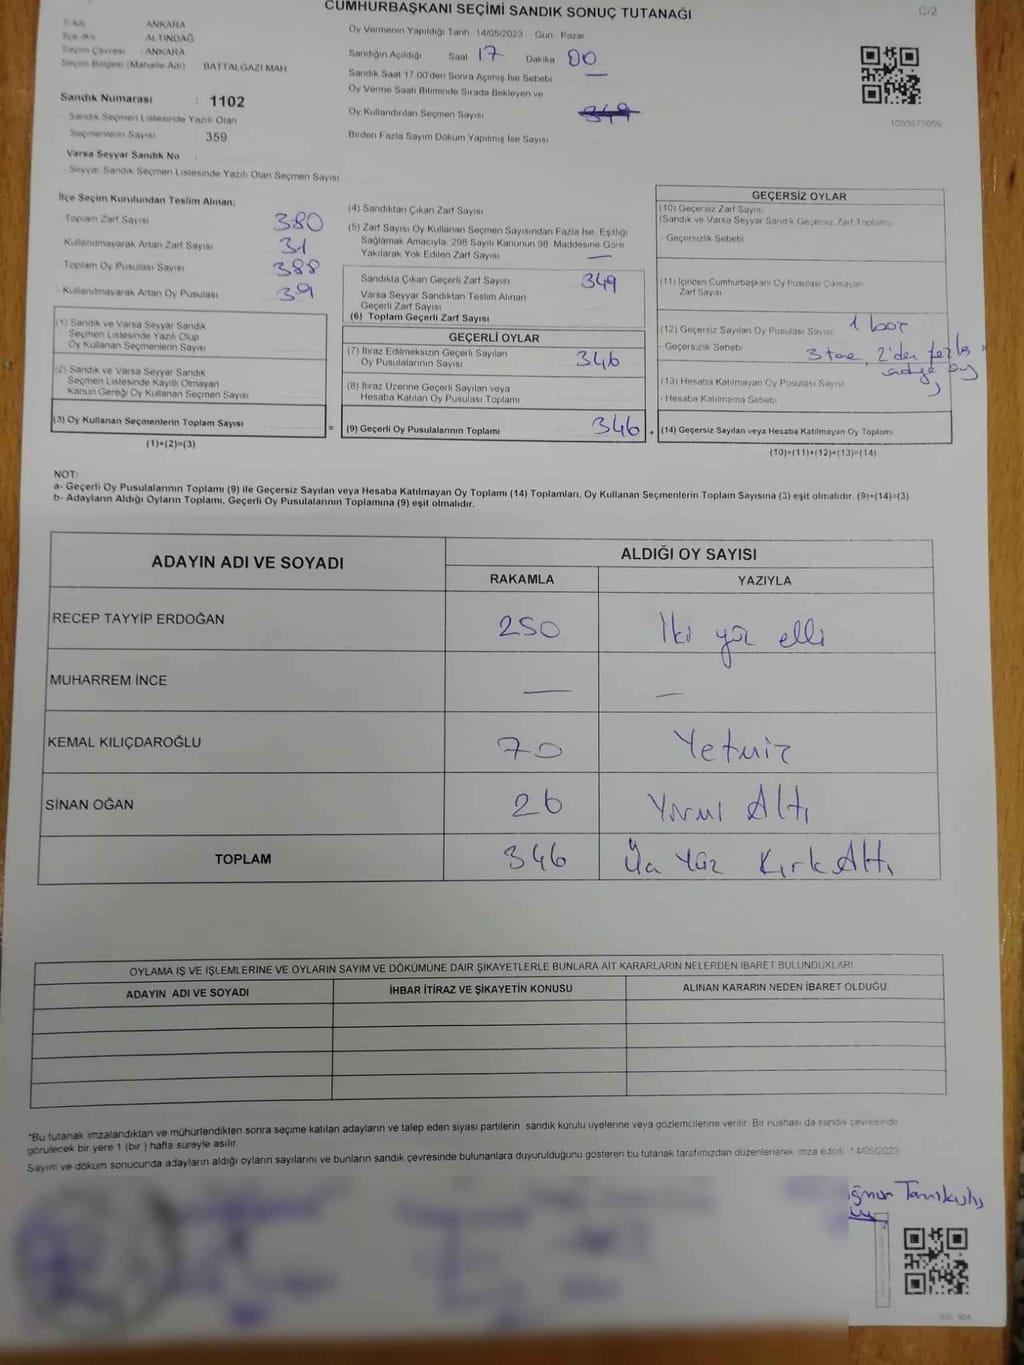 CUMHURBAŞKANI SEÇİMİ SANDIK SONUÇ TUTANAĞI
C/2
İl Adı ANKARA
İlçe Adı ALTINDAĞ
Seçim Çevresi : ANKARA
Seçim Bölgesi (Mahalle Adı) BATTALGAZİ MAH
Sandık Numarası : 1102
Sandık Seçmen Listesinde Yazılı Olan
Seçmenlerin Sayısı : 359
Varsa Seyyar Sandık No :
Seyyar Sandık Seçmen Listesinde Yazılı Olan Seçmen Sayısı
Oy Vermenin Yapıldığı Tarih 14/05/2023 Gün Pazar
Sandığın Açıldığı Saat 17 Dakika 00
Sandık Saat 17 00'den Sonra Açımış İse Sebebi —
Oy Verme Saati Bitiminde Sırada Bekleyen ve
Oy Kullandırılan Seçmen Sayısı 349
Birden Fazla Sayım Döküm Yapılmış İse Sayısı
İlçe Seçim Kurulundan Teslim Alınan;
Toplam Zarf Sayısı 380
Kullanılmayarak Artan Zarf Sayısı 31
Toplam Oy Pusulası Sayısı 388
Kullanılmayarak Artan Oy Pusulası 39
(1) Sandık ve Varsa Seyyar Sandık
Seçmen Listesinde Yazılı Olup
Oy Kullanan Seçmenlerin Sayısı
(2) Sandık ve Varsa Seyyar Sandık
Seçmen Listesinde Kayıtlı Olmayan
Kanun Gereği Oy Kullanan Seçmen Sayısı
(3) Oy Kullanan Seçmenlerin Toplam Sayısı
(1)+(2)=(3)
=
(4) Sandıktan Çıkan Zarf Sayısı
(5) Zarf Sayısı Oy Kullanan Seçmen Sayısından Fazla İse, Eşitliği
Sağlamak Amacıyla, 298 Sayılı Kanunun 98. Maddesine Göre
Yakılarak Yok Edilen Zarf Sayısı —
Sandıkta Çıkan Geçerli Zarf Sayısı 349
Varsa Seyyar Sandıktan Teslim Alınan
Geçerli Zarf Sayısı
(6) Toplam Geçerli Zarf Sayısı
GEÇERLİ OYLAR
(7) İtiraz Edilmeksizin Geçerli Sayılan
Oy Pusulalarının Sayısı 346
(8) İtiraz Üzerine Geçerli Sayılan veya
Hesaba Katılan Oy Pusulası Toplamı
(9) Geçerli Oy Pusulalarının Toplamı 346
+
GEÇERSİZ OYLAR
(10) Geçersiz Zarf Sayısı
(Sandık ve Varsa Seyyar Sandık Geçersiz Zarf Toplamı)
- Geçersizlik Sebebi
(11) İçinden Cumhurbaşkanı Oy Pusulası Çıkmayan
Zarf Sayısı
(12) Geçersiz Sayılan Oy Pusulası Sayısı 1 boş
- Geçersizlik Sebebi 3 tane, 2'den fazla
adaya oy
(13) Hesaba Katılmayan Oy Pusulası Sayısı
- Hesaba Katılmama Sebebi
(14) Geçersiz Sayılan veya Hesaba Katılmayan Oy Toplamı
(10)+(11)+(12)+(13)=(14)
NOT:
a- Geçerli Oy Pusulalarının Toplamı (9) ile Geçersiz Sayılan veya Hesaba Katılmayan Oy Toplamı (14) Toplamları, Oy Kullanan Seçmenlerin Toplam Sayısına (3) eşit olmalıdır. (9)+(14)=(3)
b- Adayların Aldığı Oyların Toplamı, Geçerli Oy Pusulalarının Toplamına (9) eşit olmalıdır.
ADAYIN ADI VE SOYADI ALDIĞI OY SAYISI
RAKAMLA YAZIYLA
RECEP TAYYİP ERDOĞAN 250 İki yüz elli
MUHARREM İNCE — —
KEMAL KILIÇDAROĞLU 70 Yetmiş
SİNAN OĞAN 26 Yirmi Altı
TOPLAM 346 Üç Yüz Kırk Altı
OYLAMA İŞ VE İŞLEMLERİNE VE OYLARIN SAYIM VE DÖKÜMÜNE DAİR ŞİKAYETLERLE BUNLARA AİT KARARLARIN NELERDEN İBARET BULUNDUKLARI
ADAYIN ADI VE SOYADI İHBAR İTİRAZ VE ŞİKAYETİN KONUSU ALINAN KARARIN NEDEN İBARET OLDUĞU
*Bu tutanak imzalandıktan ve mühürlendikten sonra seçime katılan adayların ve talep eden siyasi partilerin sandık kurulu üyelerine veya gözlemcilerine verilir. Bir nüshası da sandık çevresinde
görülecek bir yere 1 (bir) hafta süreyle asılır.
Sayım ve döküm sonucunda adayların aldığı oyların sayılarını ve bunların sandık çevresinde bulunanlara duyurulduğunu gösteren bu tutanak tarafımızdan düzenlenerek imza edildi. 14/05/2023